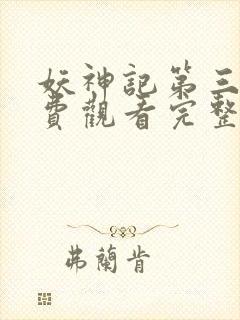 妖神記第三
費觀看完整
弗蘭肯